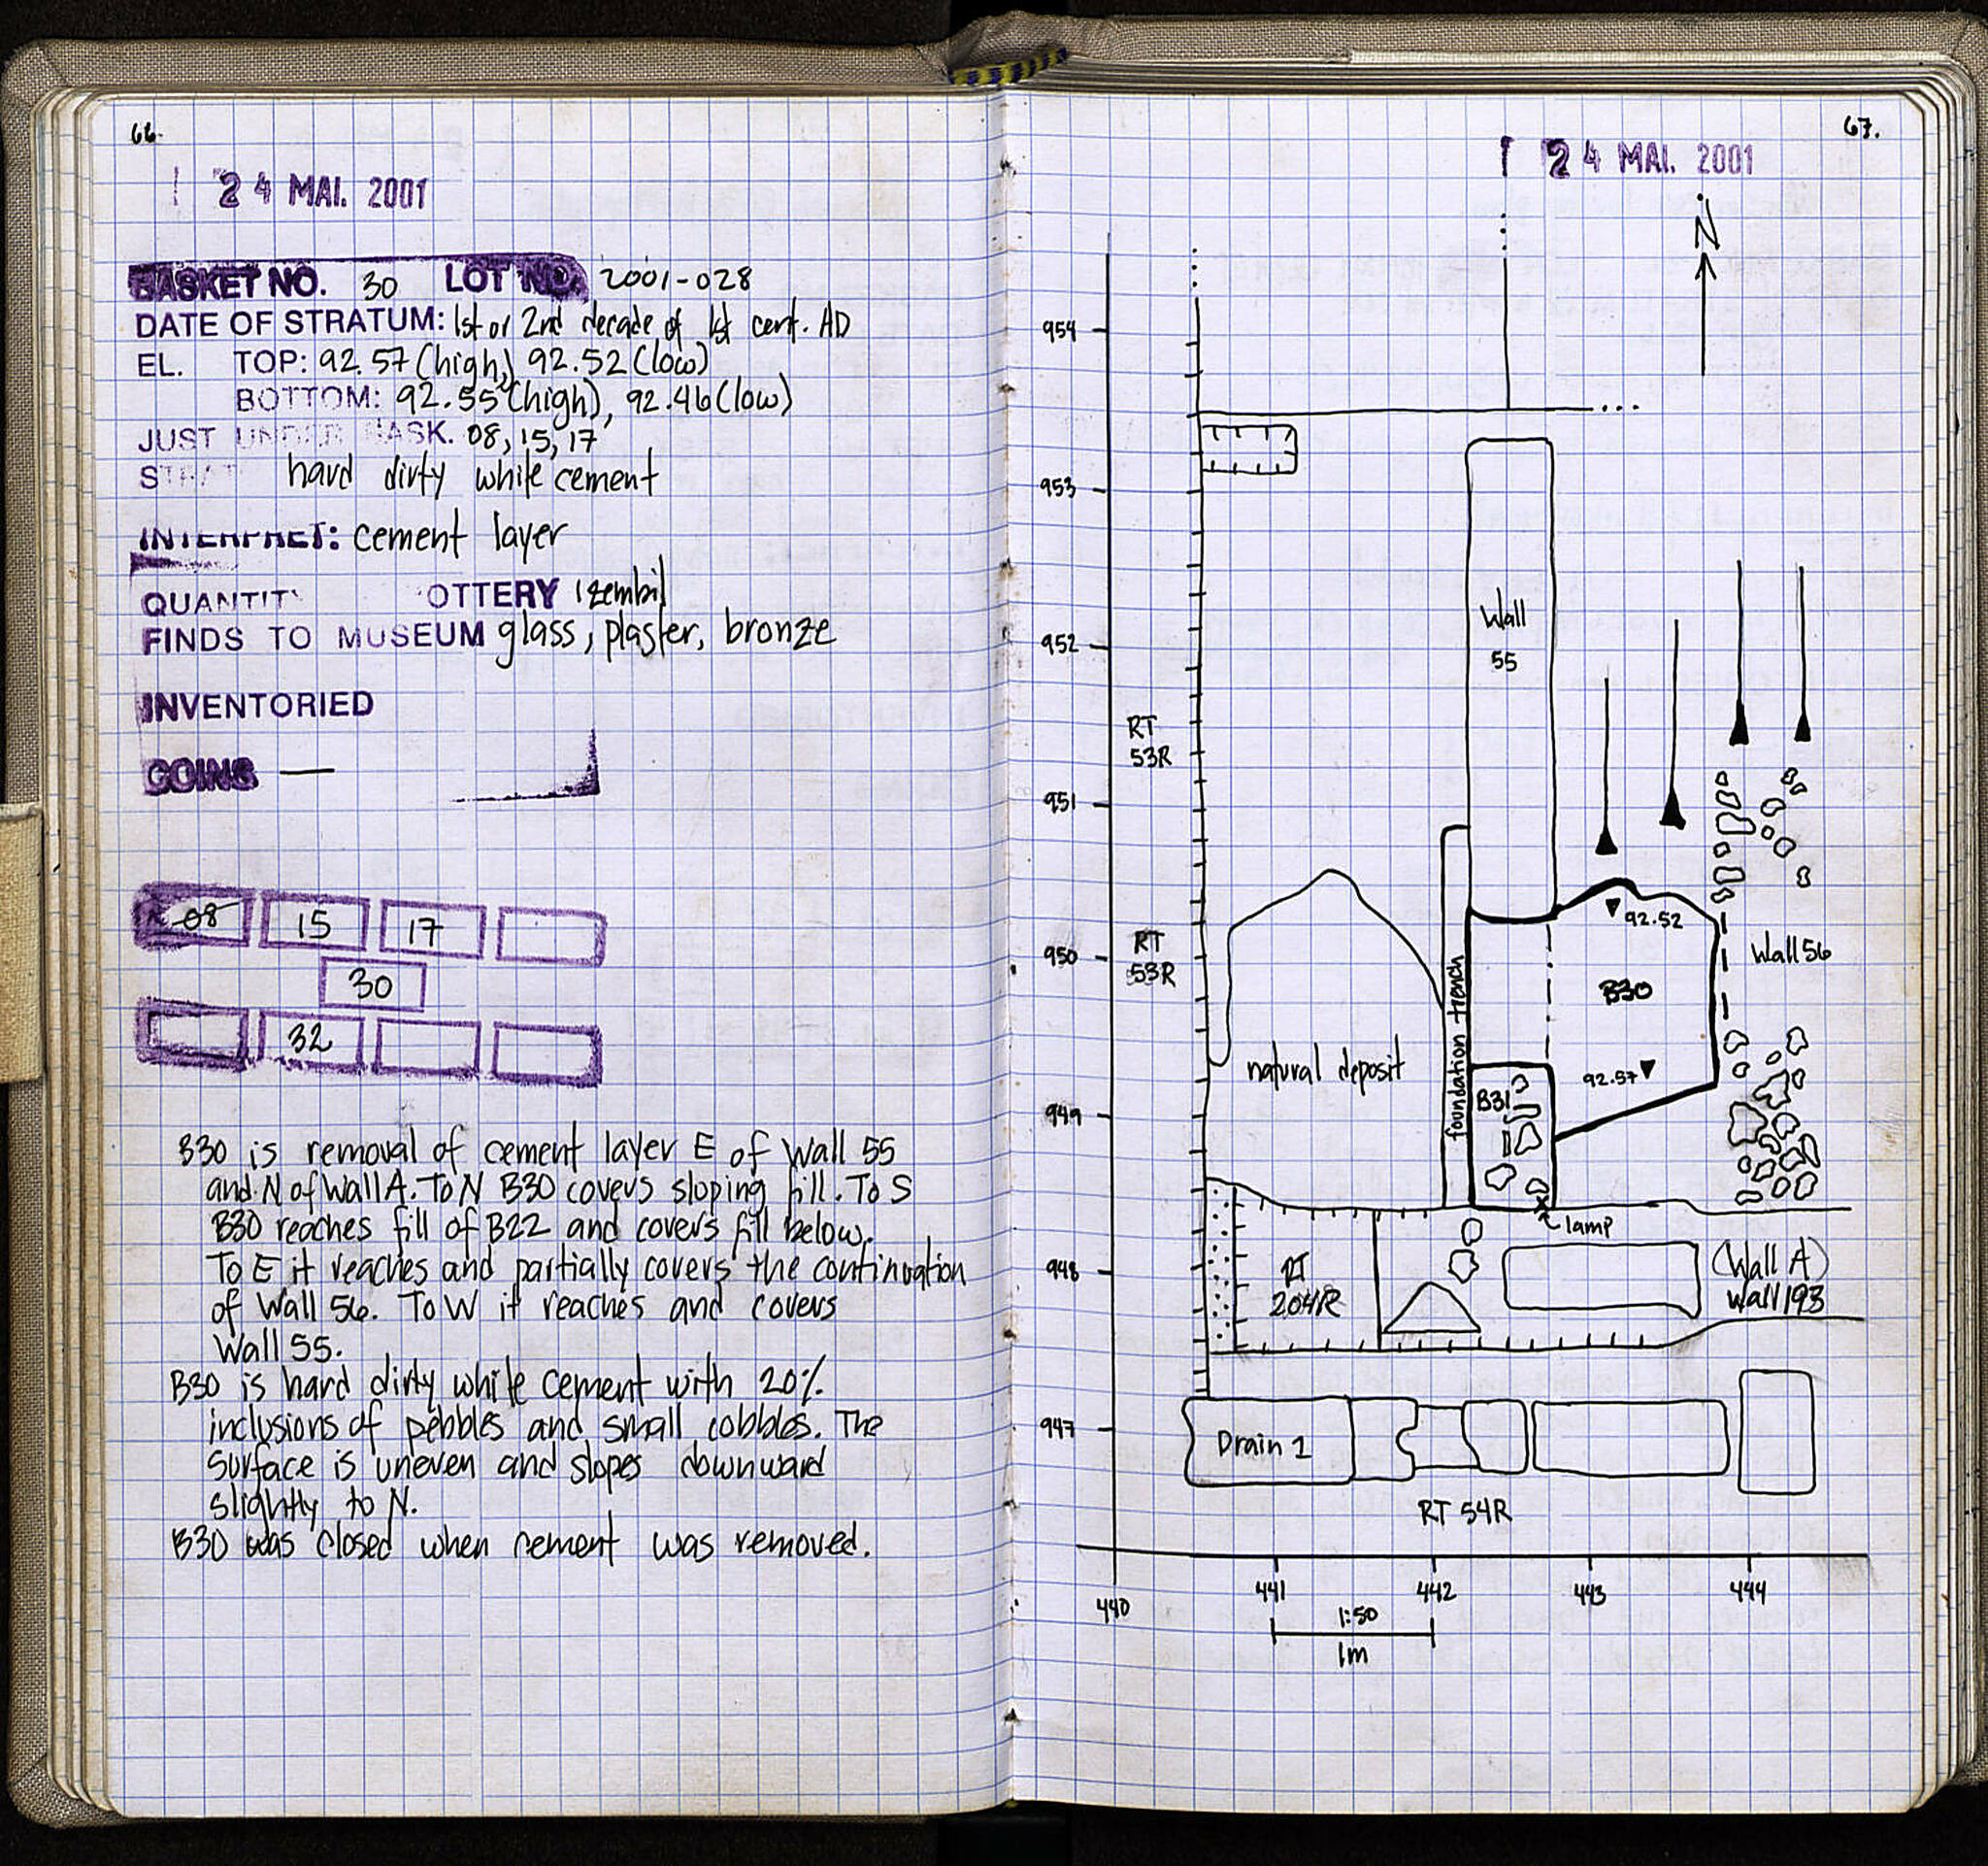 66.
24 MAI. 2001
BASKET NO. 30 LOT NO. 2001-028
DATE OF STRATUM: 1st or 2nd decade of 1st cent. AD
EL. TOP: 92.57 (high), 92.52 (low)
BOTTOM: 92.55 (high), 92.46 (low)
JUST UNDER BASK. 08, 15, 17
STRAT hard dirty white cement
INTERPRET: cement layer
QUANTIT OTTERY 1 zembil
FINDS TO MUSEUM glass, plaster, bronze
INVENTORIED
COINS —
08 15 17
30
32
B30 is removal of cement layer E of Wall 55
and N of Wall A. To N B30 covers sloping fill. To S
B30 reaches fill of B22 and covers fill below.
To E it reaches and partially covers the continuation
of Wall 56. To W it reaches and covers
Wall 55.
B30 is hard dirty white cement with 20%
inclusions of pebbles and small cobbles. The
surface is uneven and slopes downward
slightly to N.
B30 was closed when cement was removed.
67.
24 MAI. 2001
N
954
953
Wall
55
952
RT
53R
951
92.52
RT
53R
950
Wall 56
B30
foundation trench
natural deposit
92.57
B31
949
lamp
948
RT
204R
(Wall A)
Wall 193
947
Drain 1
RT 54R
440
441
442
443
444
1:50
1m